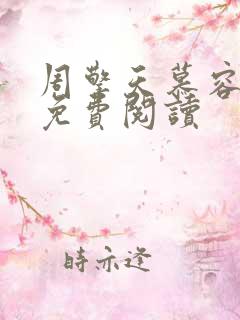 周擎天慕容
免費閱讀
時亦逢